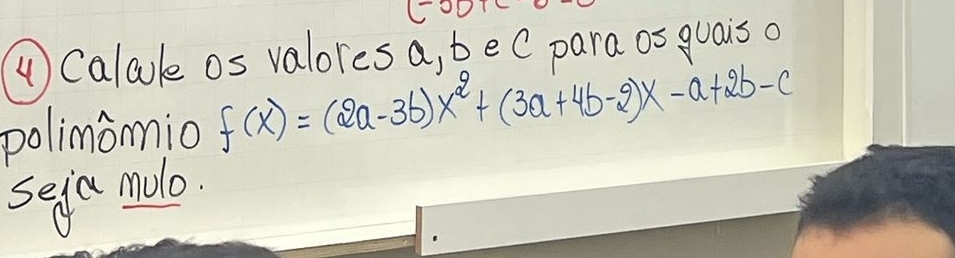 ④ Calcule os valores a, b e C para os quais o
polinômio f(x) = (2a-3b)x² + (3a+4b-2)x -a+2b-c
seja nulo.